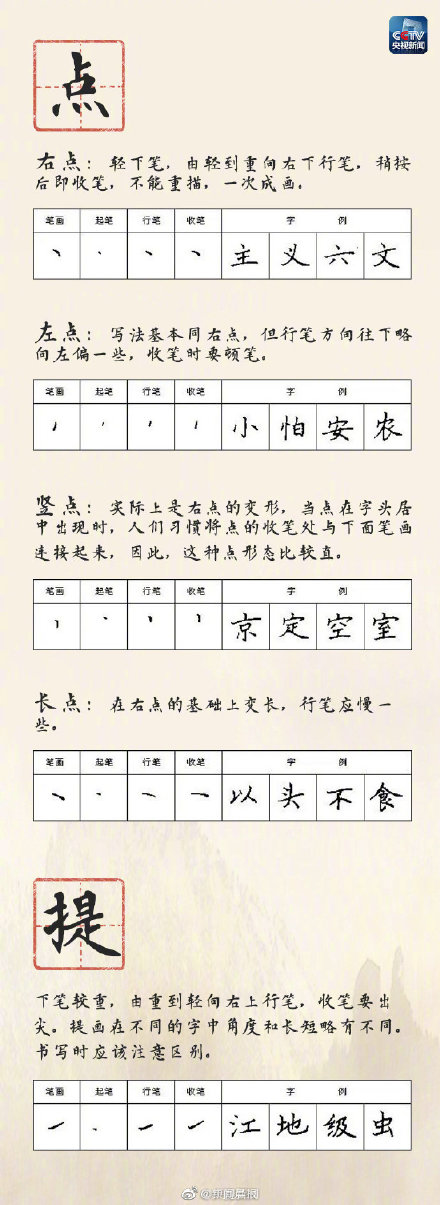 CCTV
央视新闻
点
右点：轻下笔，由轻到重向右下行笔，稍按
后即收笔，不能重描，一次成画。
笔画 起笔 行笔 收笔 字 例
主 义 六 文
左点：写法基本同右点，但行笔方向往下略
向左偏一些，收笔时要顿笔。
笔画 起笔 行笔 收笔 字 例
小 怕 安 农
竖点：实际上是右点的变形，当点在字头居
中出现时，人们习惯将点的收笔处与下面笔画
连接起来，因此，这种点形态比较直。
笔画 起笔 行笔 收笔 字 例
京 定 空 室
长点：在右点的基础上变长，行笔应慢一
些。
笔画 起笔 行笔 收笔 字 例
以 头 不 食
提
下笔较重，由重到轻向右上行笔，收笔要出
尖。提画在不同的字中角度和长短略有不同。
书写时应该注意区别。
笔画 起笔 行笔 收笔 字 例
江 地 级 虫
@新闻晨报